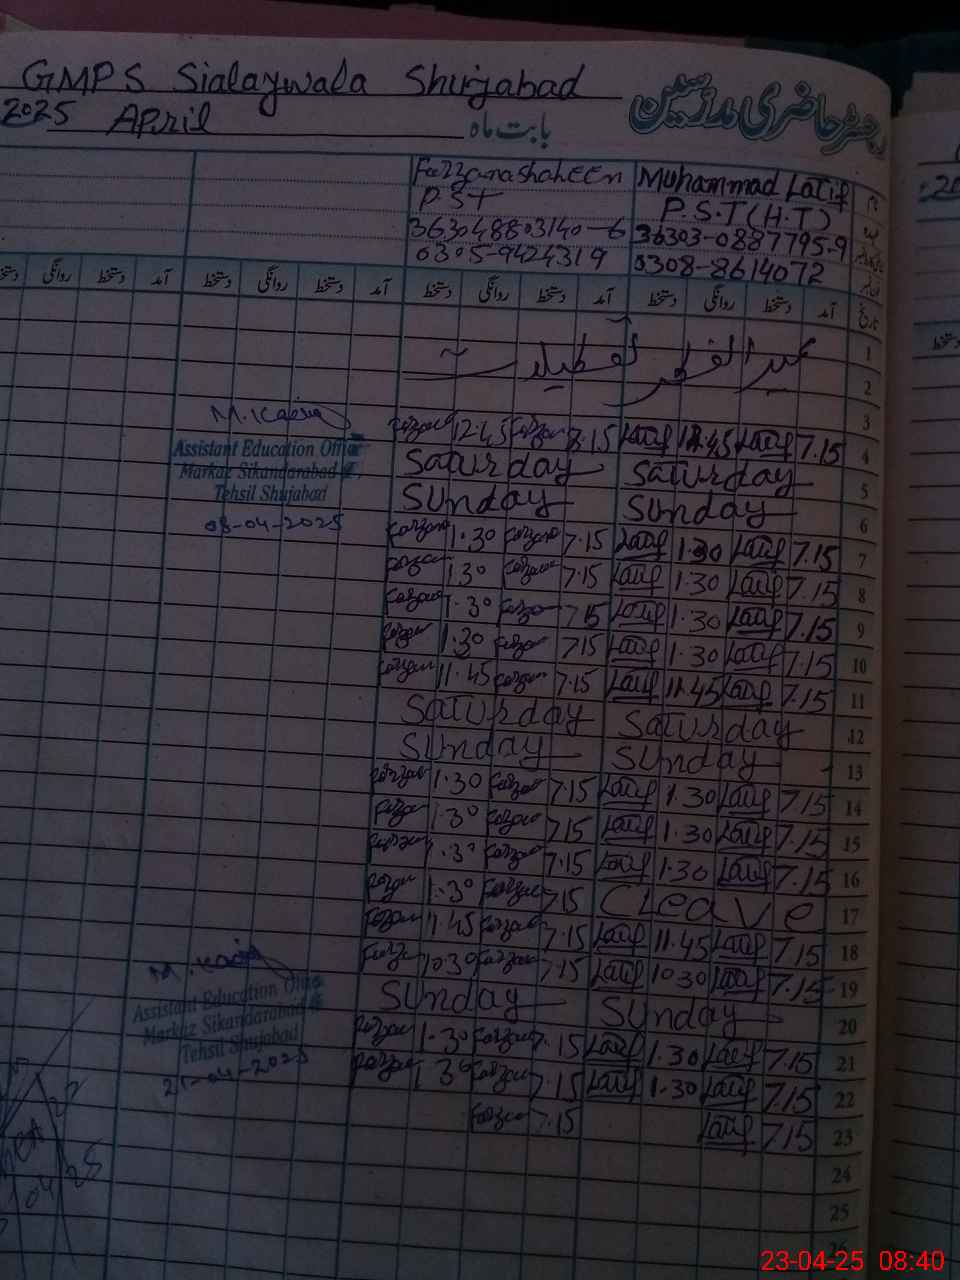 GMPS Sialaywala Shujabad
رجسٹر حاضری مدرسین
2025 April بابت ماہ
Farzana Shaheen Muhammad Latif نام
P.S.T P.S.T (H.T) عہدہ
36304-8803140-6 36303-0887795-9
0305-9424319 0308-8614072
دستخط آمد دستخط روانگی دستخط آمد دستخط روانگی دستخط آمد دستخط روانگی دستخط آمد تاریخ
1
عید الفطر تعطیلات 2
3
Farzana 12.45 Farzana 8.15 Latif 12.45 Latif 7.15 4
Saturday Saturday 5
Sunday Sunday 6
Farzana 1.30 Farzana 7.15 Latif 1.30 Latif 7.15 7
Farzana 1.30 Farzana 7.15 Latif 1.30 Latif 7.15 8
Farzana 1.30 Farzana 7.15 Latif 1.30 Latif 7.15 9
Farzana 1.30 Farzana 7.15 Latif 1.30 Latif 7.15 10
Farzana 11.45 Farzana 7.15 Latif 11.45 Latif 7.15 11
Saturday Saturday 12
Sunday Sunday 13
Farzana 1.30 Farzana 7.15 Latif 1.30 Latif 7.15 14
Farzana 1.30 Farzana 7.15 Latif 1.30 Latif 7.15 15
Farzana 1.30 Farzana 7.15 Latif 1.30 Latif 7.15 16
Farzana 1.30 Farzana 7.15 C Leave 17
Farzana 11.45 Farzana 7.15 Latif 11.45 Latif 7.15 18
Farzana 10.30 Farzana 7.15 Latif 10.30 Latif 7.15 19
Sunday Sunday 20
Farzana 1.30 Farzana 7.15 Latif 1.30 Latif 7.15 21
Farzana 1.30 Farzana 7.15 Latif 1.30 Latif 7.15 22
Farzana 7.15 Latif 7.15 23
24
25
26
M. Kabir
Assistant Education Officer
Markaz Sikandarabad
Tehsil Shujabad
08-04-2025
M. Kabir
Assistant Education Officer
Markaz Sikandarabad
Tehsil Shujabad
21-04-2025
23-04-25 08:40